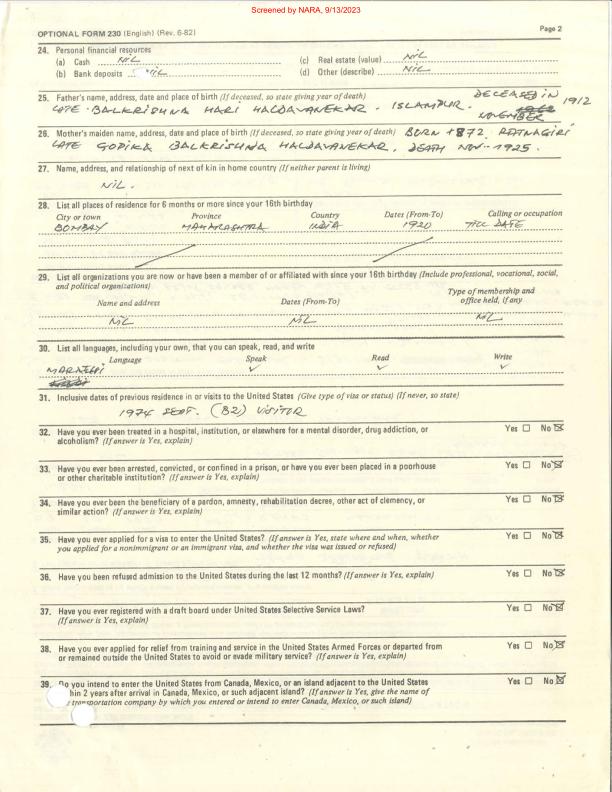 Screened by NARA, 9/13/2023
OPTIONAL FORM 230 (English) (Rev. 6-82) Page 2
24. Personal financial resources
(a) Cash NIL (c) Real estate (value) NIL
(b) Bank deposits NIL (d) Other (describe) NIL
25. Father's name, address, date and place of birth (If deceased, so state giving year of death) DECEASED IN
LATE. BALKRISHNA HARI HALDAVANEKAR. ISLAMPUR. NOVEMBER 1912
26. Mother's maiden name, address, date and place of birth (If deceased, so state giving year of death) BORN 1872. RATNAGIRI
LATE GOPIKA BALKRISHNA HALDAVANEKAR. DEATH NOV-1925.
27. Name, address, and relationship of next of kin in home country (If neither parent is living)
NIL.
28. List all places of residence for 6 months or more since your 16th birthday
City or town Province Country Dates (From-To) Calling or occupation
BOMBAY MAHARASHTRA INDIA 1920 TILL DATE
29. List all organizations you are now or have been a member of or affiliated with since your 16th birthday (Include professional, vocational, social,
and political organizations)
Name and address Dates (From-To) Type of membership and
office held, if any
NIL NIL NIL
30. List all languages, including your own, that you can speak, read, and write
Language Speak Read Write
MARATHI ✓ ✓ ✓
31. Inclusive dates of previous residence in or visits to the United States (Give type of visa or status) (If never, so state)
1974 SEPT. (B2) VISITOR
32. Have you ever been treated in a hospital, institution, or elsewhere for a mental disorder, drug addiction, or Yes ☐ No ☒
alcoholism? (If answer is Yes, explain)
33. Have you ever been arrested, convicted, or confined in a prison, or have you ever been placed in a poorhouse Yes ☐ No ☒
or other charitable institution? (If answer is Yes, explain)
34. Have you ever been the beneficiary of a pardon, amnesty, rehabilitation decree, other act of clemency, or Yes ☐ No ☒
similar action? (If answer is Yes, explain)
35. Have you ever applied for a visa to enter the United States? (If answer is Yes, state where and when, whether Yes ☐ No ☒
you applied for a nonimmigrant or an immigrant visa, and whether the visa was issued or refused)
36. Have you been refused admission to the United States during the last 12 months? (If answer is Yes, explain) Yes ☐ No ☒
37. Have you ever registered with a draft board under United States Selective Service Laws? Yes ☐ No ☒
(If answer is Yes, explain)
38. Have you ever applied for relief from training and service in the United States Armed Forces or departed from Yes ☐ No ☒
or remained outside the United States to avoid or evade military service? (If answer is Yes, explain)
39. Do you intend to enter the United States from Canada, Mexico, or an island adjacent to the United States Yes ☐ No ☒
hin 2 years after arrival in Canada, Mexico, or such adjacent island? (If answer is Yes, give the name of
transportation company by which you entered or intend to enter Canada, Mexico, or such island)